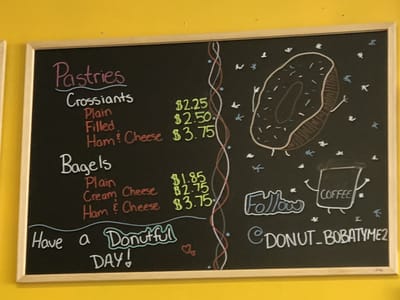 Pastries
Crossiants
Plain $2.25
Filled $2.50
Ham & Cheese $3.75
Bagels
Plain $1.85
Cream Cheese $2.75
Ham & Cheese $3.75
Have a Donutful
DAY!
COFFEE
Follow
@DONUT_BOBATYME2